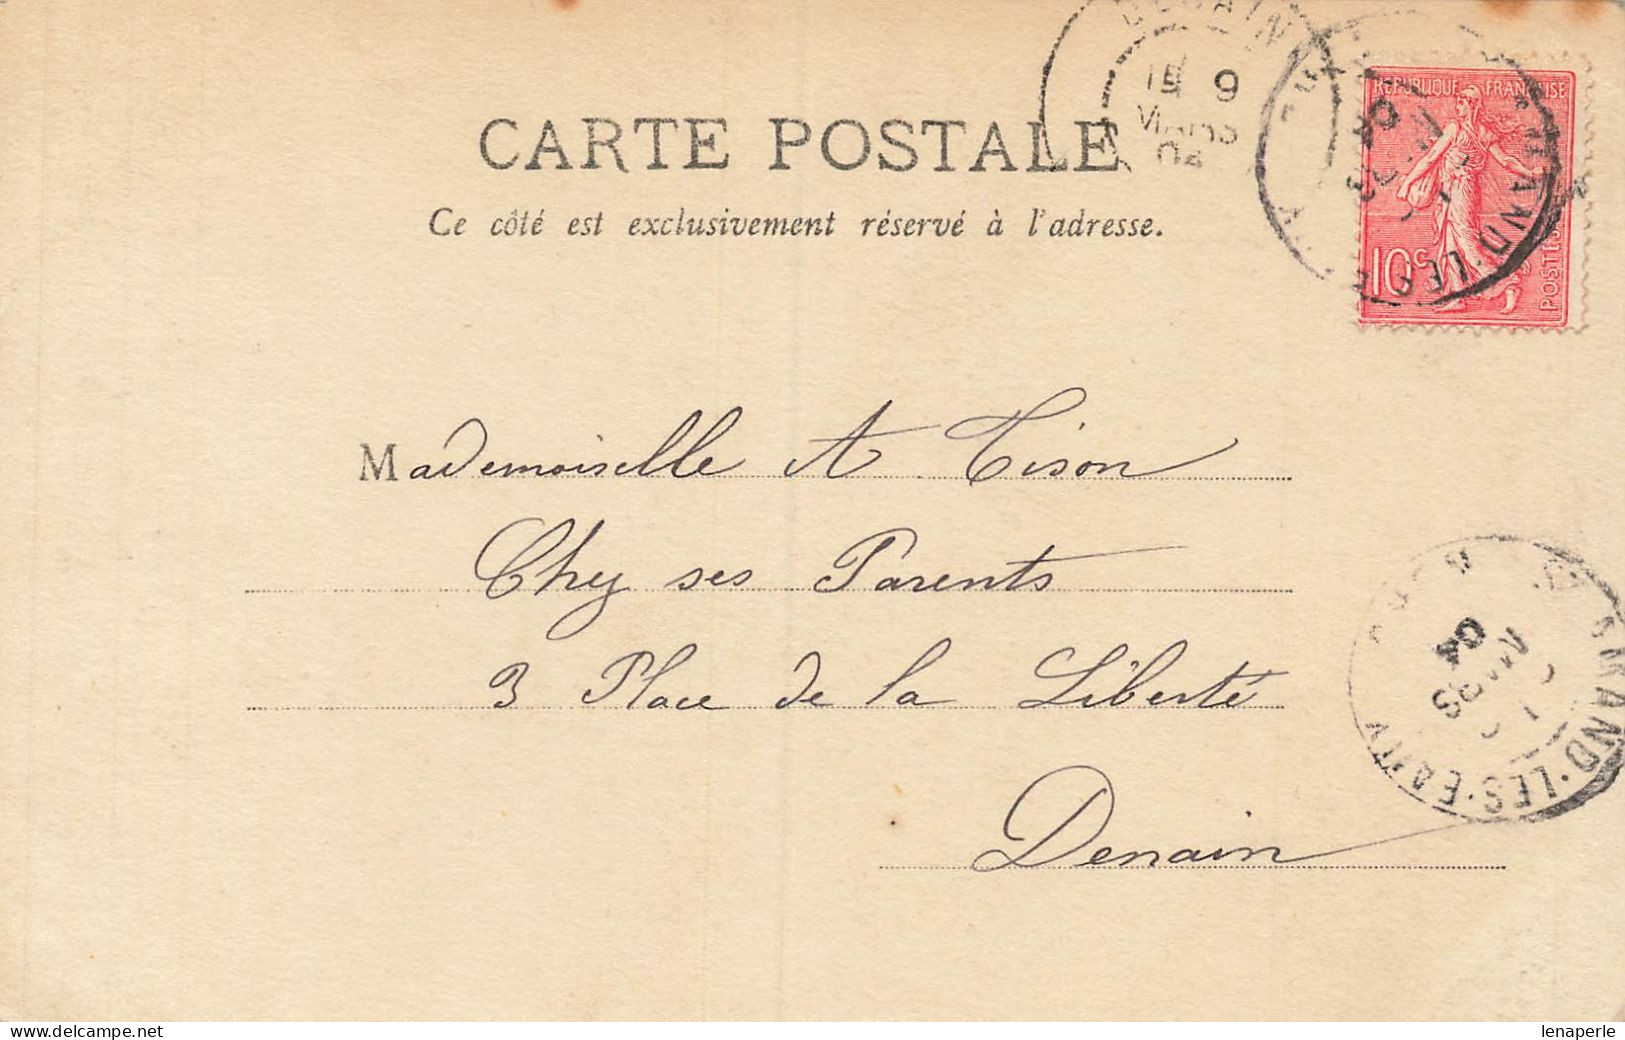 CARTE POSTALE
Ce côté est exclusivement réservé à l'adresse.
DENAIN
9
MARS
04
REPUBLIQUE FRANÇAISE
10c
POSTES
Mademoiselle A Tison
Chez ses Parents
3 Place de la Liberté
Denain
AMAND·LES·EAUX
MARS
04
www.delcampe.net
lenaperle